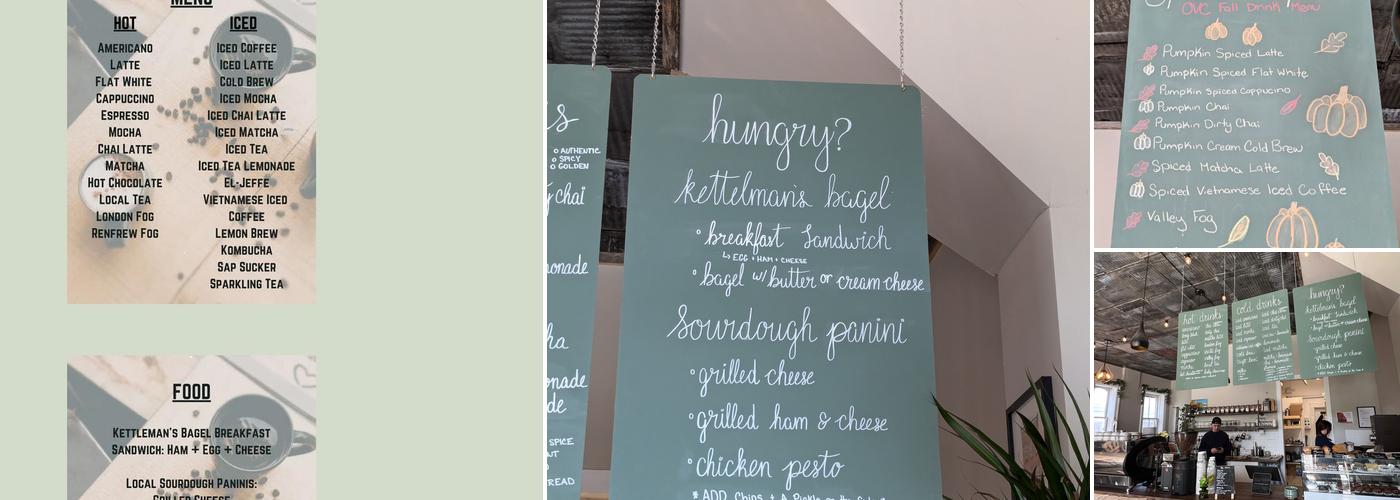 MENU
HOT
AMERICANO
LATTE
FLAT WHITE
CAPPUCCINO
ESPRESSO
MOCHA
CHAI LATTE
MATCHA
HOT CHOCOLATE
LOCAL TEA
LONDON FOG
RENFREW FOG
ICED
ICED COFFEE
ICED LATTE
COLD BREW
ICED MOCHA
ICED CHAI LATTE
ICED MATCHA
ICED TEA
ICED TEA LEMONADE
EL-JEFFE
VIETNAMESE ICED
COFFEE
LEMON BREW
KOMBUCHA
SAP SUCKER
SPARKLING TEA
FOOD
KETTLEMAN'S BAGEL BREAKFAST
SANDWICH: HAM + EGG + CHEESE
LOCAL SOURDOUGH PANINIS:
GRILLED CHEESE
s
o AUTHENTIC
o SPICY
o GOLDEN
chai
onade
ha
onade
de
SPICE
UT
READ
hungry?
kettelman's bagel
° breakfast sandwich
↳ EGG + HAM + CHEESE
° bagel w/ butter or cream cheese
Sourdough panini
° grilled cheese
° grilled ham & cheese
° chicken pesto
* ADD Chips + A Pickle
OVC Fall Drink Menu
Pumpkin Spiced Latte
Pumpkin Spiced Flat White
Pumpkin Spiced Cappucino
Pumpkin Chai
Pumpkin Dirty Chai
Pumpkin Cream Cold Brew
Spiced Matcha Latte
Spiced Vietnamese Iced Coffee
Valley Fog
hot drinks
cold drinks
hungry?
kettelman's bagel
° breakfast sandwich
° bagel w/ butter or cream cheese
sourdough panini
° grilled cheese
° grilled ham & cheese
° chicken pesto